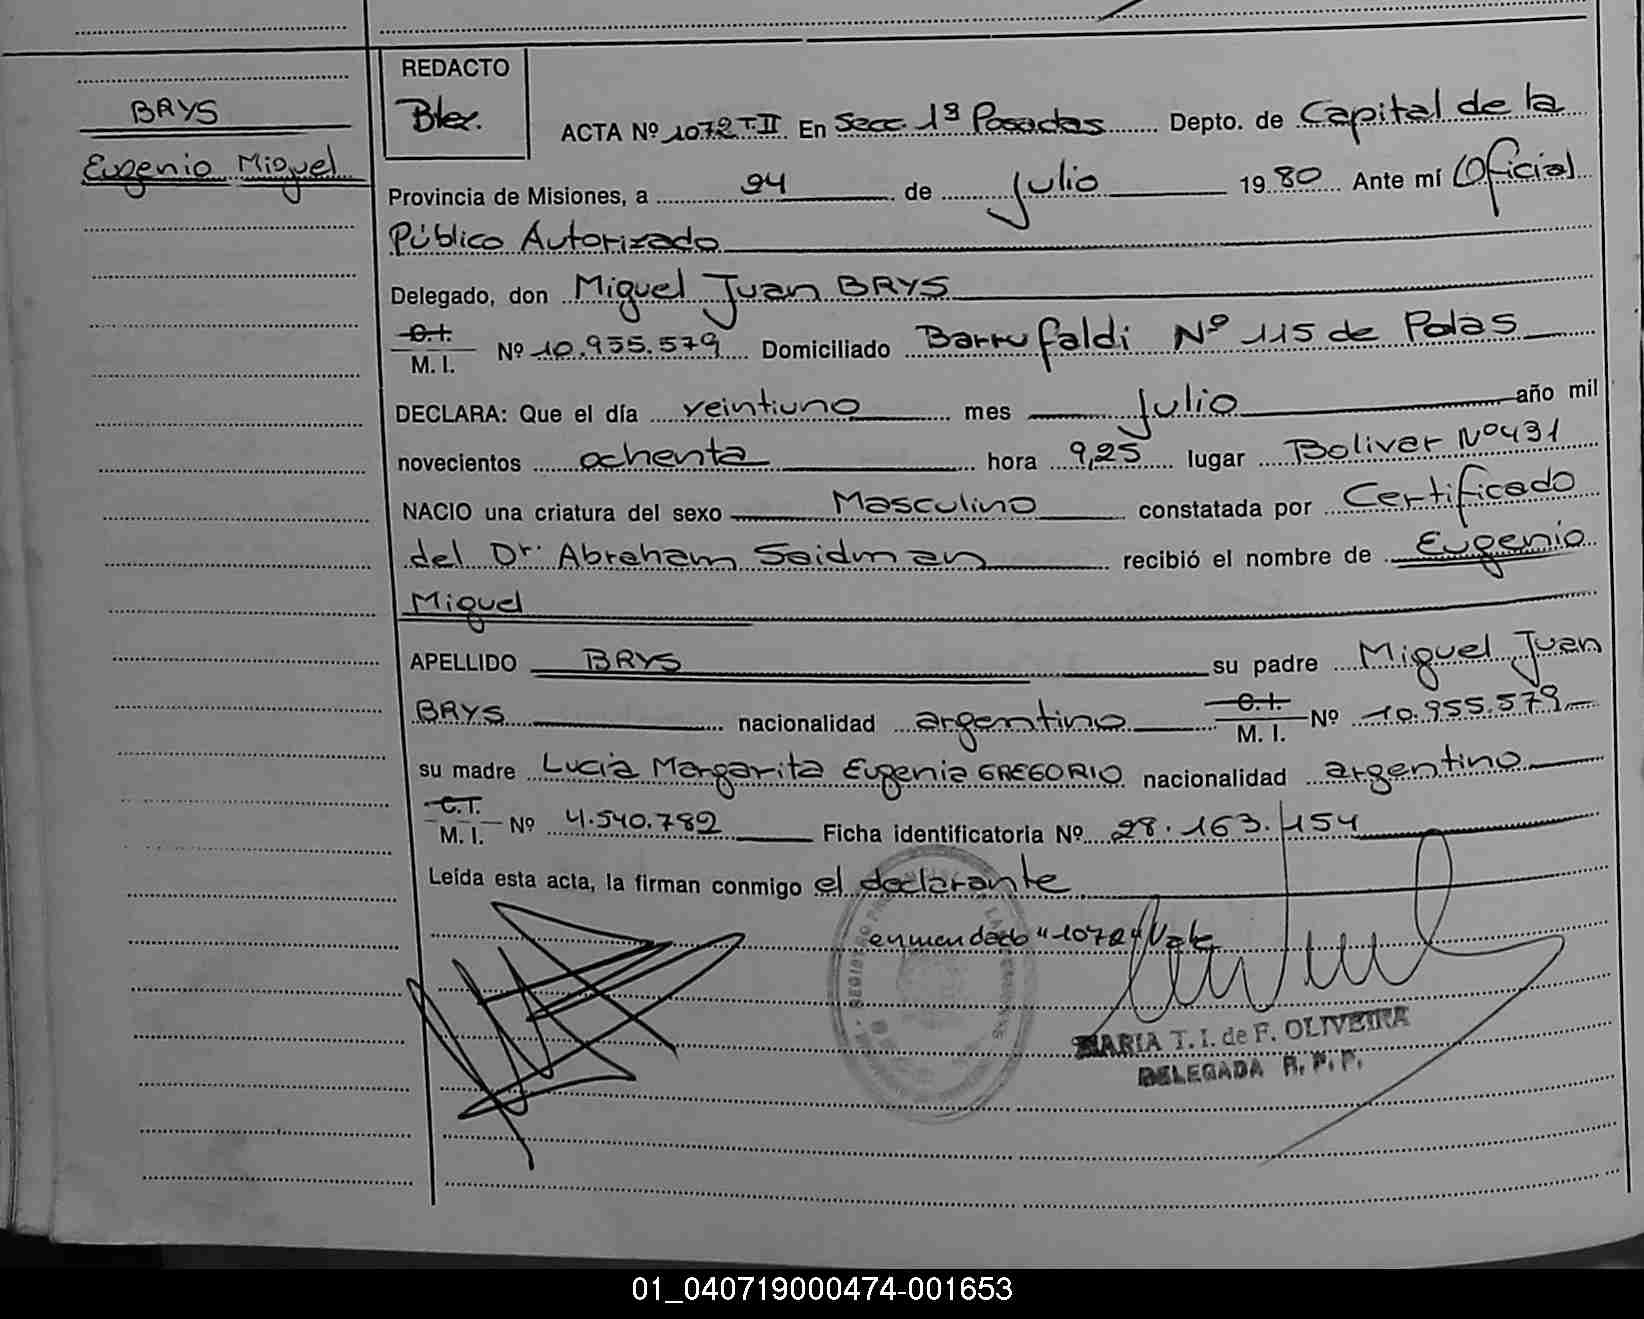 BRYS
Eugenio Miguel
REDACTO
ACTA Nº 1072 T-II En Secc. 1ª Posadas Depto. de Capital de la
Provincia de Misiones, a 24 de Julio 1980 Ante mí Oficial
Público Autorizado
Delegado, don Miguel Juan BRYS
C.I.
M. I. Nº 10.955.579 Domiciliado Barrufaldi Nº 115 de Pdas
DECLARA: Que el día veintiuno mes Julio año mil
novecientos ochenta hora 9,25 lugar Bolivar Nº 431
NACIO una criatura del sexo Masculino constatada por Certificado
del Dr. Abraham Saidman recibió el nombre de Eugenio
Miguel
APELLIDO BRYS su padre Miguel Juan
BRYS nacionalidad argentino C.I. M. I. Nº 10.955.579
su madre Lucia Margarita Eugenia GREGORIO nacionalidad argentino
C.I.
M. I. Nº 4.540.782 Ficha identificatoria Nº 28.163.154
Leída esta acta, la firman conmigo el declarante
enmendado "1072" Vale
MARIA T. I. de F. OLIVEIRA
DELEGADA R. P. P.
01_040719000474-001653